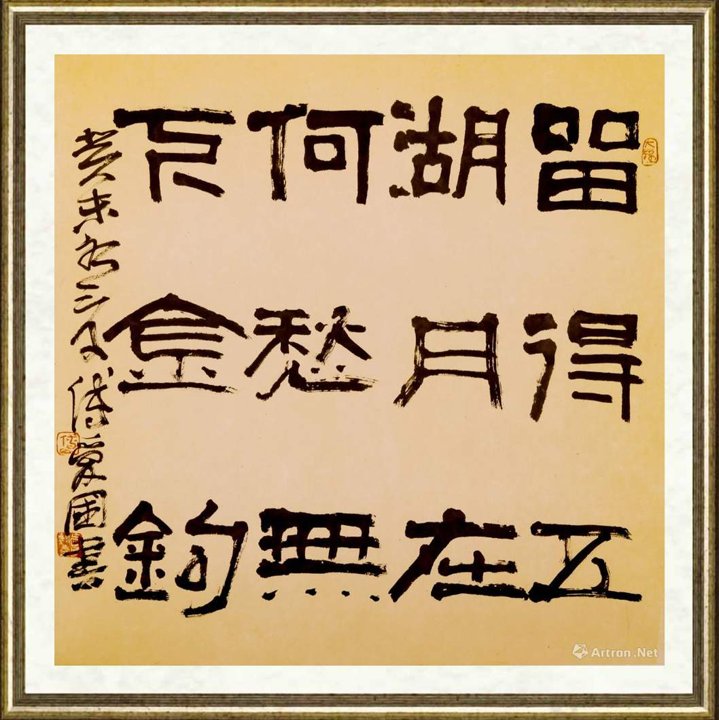 留得五
湖月在
何愁無
下金鉤
癸未 三月 傅 國書
Artron.Net